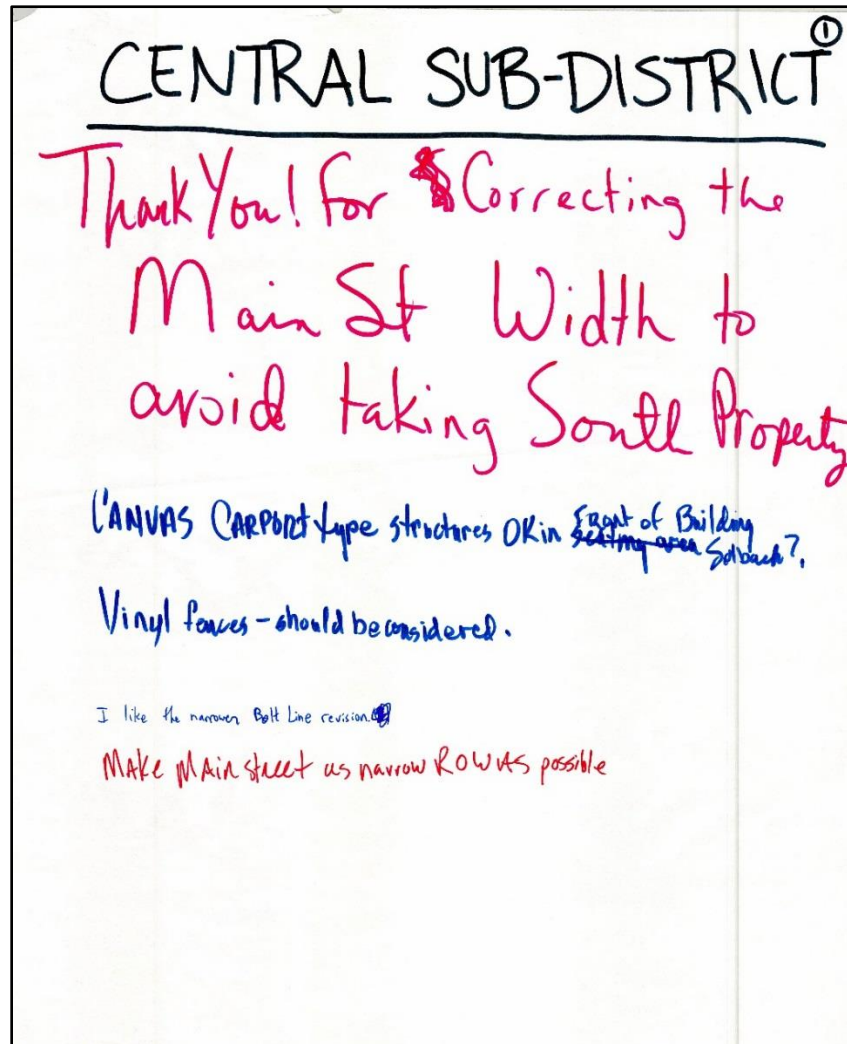 ①
CENTRAL SUB-DISTRICT
Thank You! For Correcting the
Main St Width to
avoid taking South Property
CANVAS CARPORT type structures OK in Front of Building
seating area Setback?.
Vinyl fences - should be considered.
I like the narrower Belt Line revision.
MAKE MAin street as narrow ROW AS possible